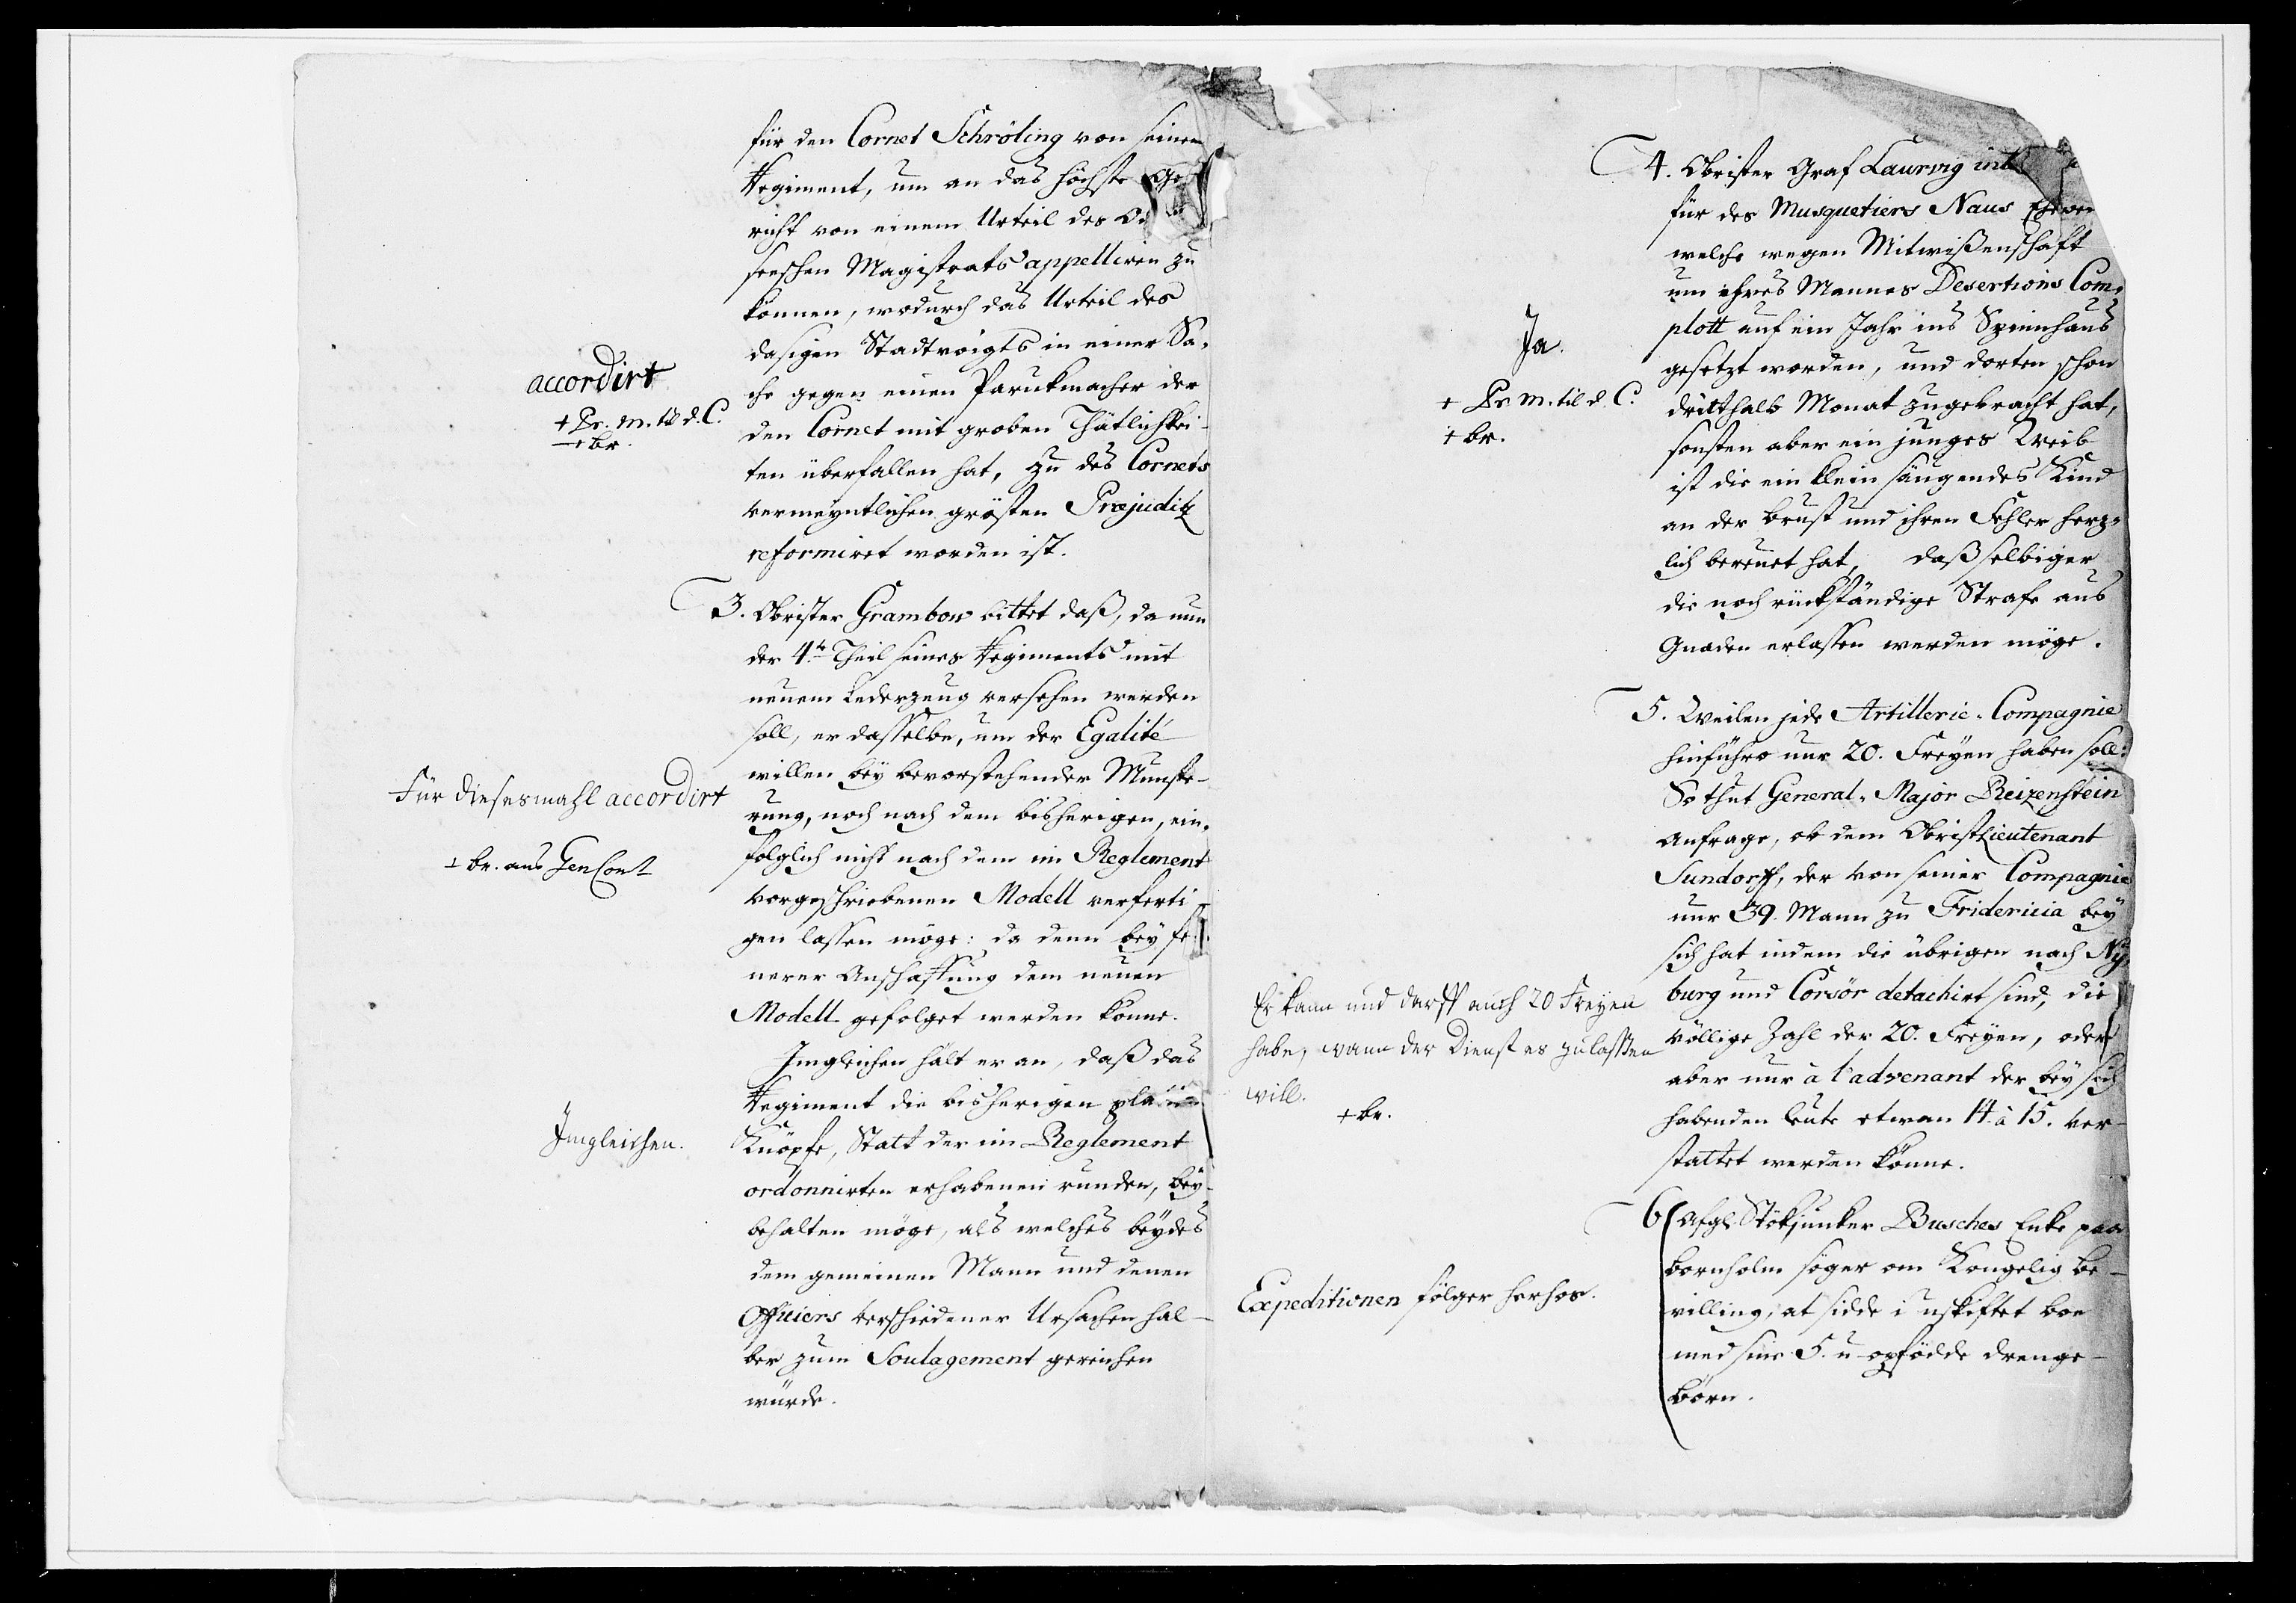 für den Cornet Schröling von seinem
Regiment, um an das höchste Ge¬
richt von einem Urteil des Od
seeschen Magistrats appelliren zu
können, wodurch das Urteil des
dasigen Stadtvoigts in einer Sa¬
che gegen einen Parukmacher der
den Cornet mit groben Thätlichkei¬
ten überfallen hat, zu des Cornets
vermeyntlichen grösten Præjuditz
reformiret worden ist.
accordirt
+ Pr. M. til d. C.
+ br.
3. Obrister Grambow bittet daß, da nun
der 4.te Theil seines Regiments mit
neuem Lederzeug versehen werden
soll, er dasselbe, um der Egalité
willen bey bevorstehender Munste¬
rung, noch nach dem bisherigen, ein¬
folglich nicht nach dem im Reglement
vorgeschriebenen Modell verferti¬
gen lassen möge: da denn bey fe¬
nerer Anschaffung dem neuen
Modell gefolget werden könne.
Für dieses mahl accordirt
+ br. aus Gen Cont
Imgleichen hält er an, daß das
Regiment die bisherigen
Knöpfe, Statt der im Reglement
ordonnirten erhabenen runden, bey¬
behalten möge, als welches beydes
dem gemeinen Mann und denen
Officiers verschiedener Ursachen hal¬
ber zum Soulagement gereichen
würde.
Imgleichen.
4. Obrister Graf Laurvig int
für des Musquetiers Naus
welche wegen Mitwißenschaft
um ihres Mannes Desertions Com¬
plott auf ein Jahr ins Spinnhaus
gesetzt worden, und dorten schon
dritthalb Monat zugebracht hat,
sonsten aber ein junges Weib
ist die ein klein säugendes Kind
an der Brust und ihren Fehler herz¬
lich bereuet hat, daß selbiger
die noch rückständige Strafe aus
Gnaden erlassen werden möge.
Ja.
+ Pr. M. til d. C.
+ br.
5. Weilen jede Artillerie-Compagnie
hinführo nur 20. Freyen haben soll:
So thut General-Major Reizenstein
Anfrage, ob dem Obristlieutenant
Sundorff, der von seiner Compagnie
nur 39. Mann zu Fridericia bey
sich hat indem die übrigen nach Ny¬
burg und Corsör detachirt sind, die
völlige Zahl der 20. Freyen, oder
aber nur à l'advenant der bey sich
habenden Leute etwan 14 à 15. ver¬
stattet werden könne.
Er kann und darff auch 20 Freyen
habe, wann der Dienst es zulassen
will.
+ br.
6 Afgl. Stökjunker Busches Enke paa
Bornholm söger om Kongelig be¬
villing, at sidde i uskiftet boe
med sine 5. u-opfödde drenge¬
börn.
Expeditionen fölger herhos.